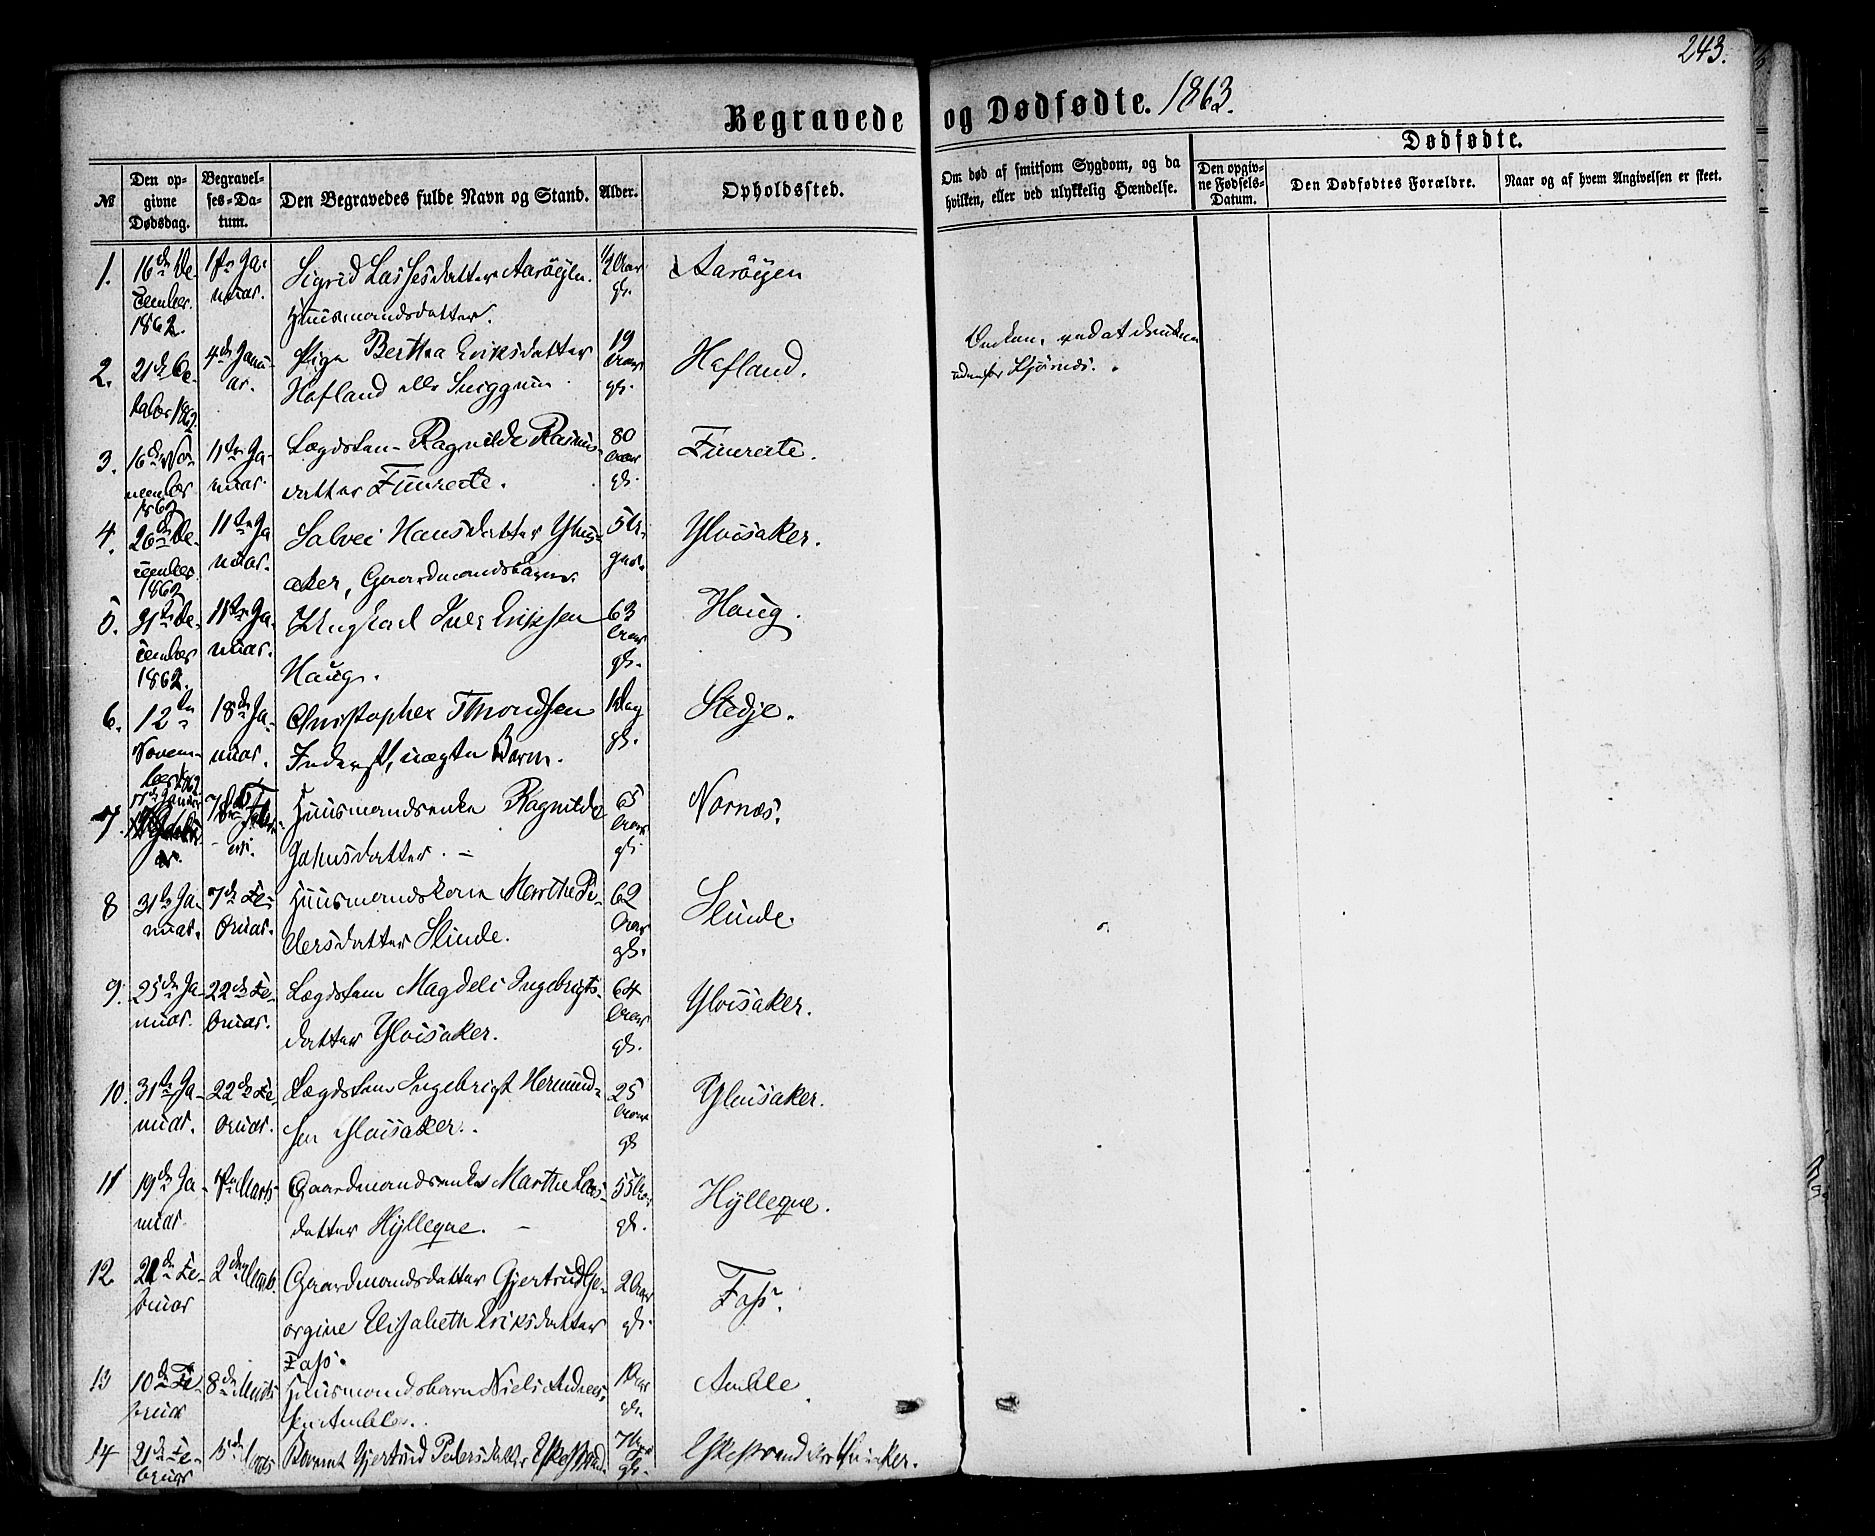 243.
Begravede og Dødfødte. 1863.
№
Den opgivne Dødsdag.
Begravelses-Datum.
Den Begravedes fulde Navn og Stand.
Alder.
Opholdssted.
Om død af smitsom Sygdom, og da hvilken, eller ved ulykkelig Hændelse.
Dødfødte.
Den opgivne Fødsels-Datum.
Den Dødfødtes Forældre.
Naar og af hvem Angivelsen er skeet.
1. 16de December 1862. 1ste Januar. Sigrid Lassesdatter Aarøyen. Huusmandsdatter. 1/2 Aar gl. Aarøyen
2. 21de 1862. 4de Januar. Pige Berthea Eriksdatter Hafland 19 Aar gl. Hafland.
3. 16de November 1862 11te Januar. Lægdslem Ragnilde Rasmusdatter Fimreite. 80 Aar gl. Fimreite.
4. 26de December 1862 11te Januar. Salvei Hansdatter Ylvisaker, Gaardmandsbarn. 5 Ylvisaker.
5. 31te December 1862. 11te Januar. Iver Eriksen Haug. 63 Aar gl. Haug.
6. 12te November 1862 18de Januar. Christopher Throndsen Inderst, uægte Barn. 1 Dag gl. Stedje.
7. Januar Huusmandsenke Ragnilde Jahnsdatter. 65 Aar gl. Nornæs.
8 31te Januar. 7de Februar. Huusmandskone Marthe Pedersdatter Slinde. 62 Aar gl. Slinde.
9. 25de Januar. 22de Februar. Lægdslem Magdeli Ingebrigtsdatter Ylvisaker. 64 Aar gl. Ylvisaker.
10. 31te Januar. 22de Februar. Lægdslem Ingebrigt Hermundsen Ylvisaker. 25 Aar gl Ylvisaker.
11 19de Januar 1ste Marts Gaardmandsenke Marthe Larsdatter Hylleqne. 55 Aar gl. Hylleqne.
12. Februar 2den Marts. Gaardmandsdatter Gjertrud Georgine Elisabeth Eriksdatter Foss. 2 Aar gl. Foss.
13 10de Februar 8de Marts Huusmandsbarn Niels Amble. 1 Aar gl. Amble
14 21de Februar Marts Barnet Gjertrud Pedersdatter Eskestrand gl.